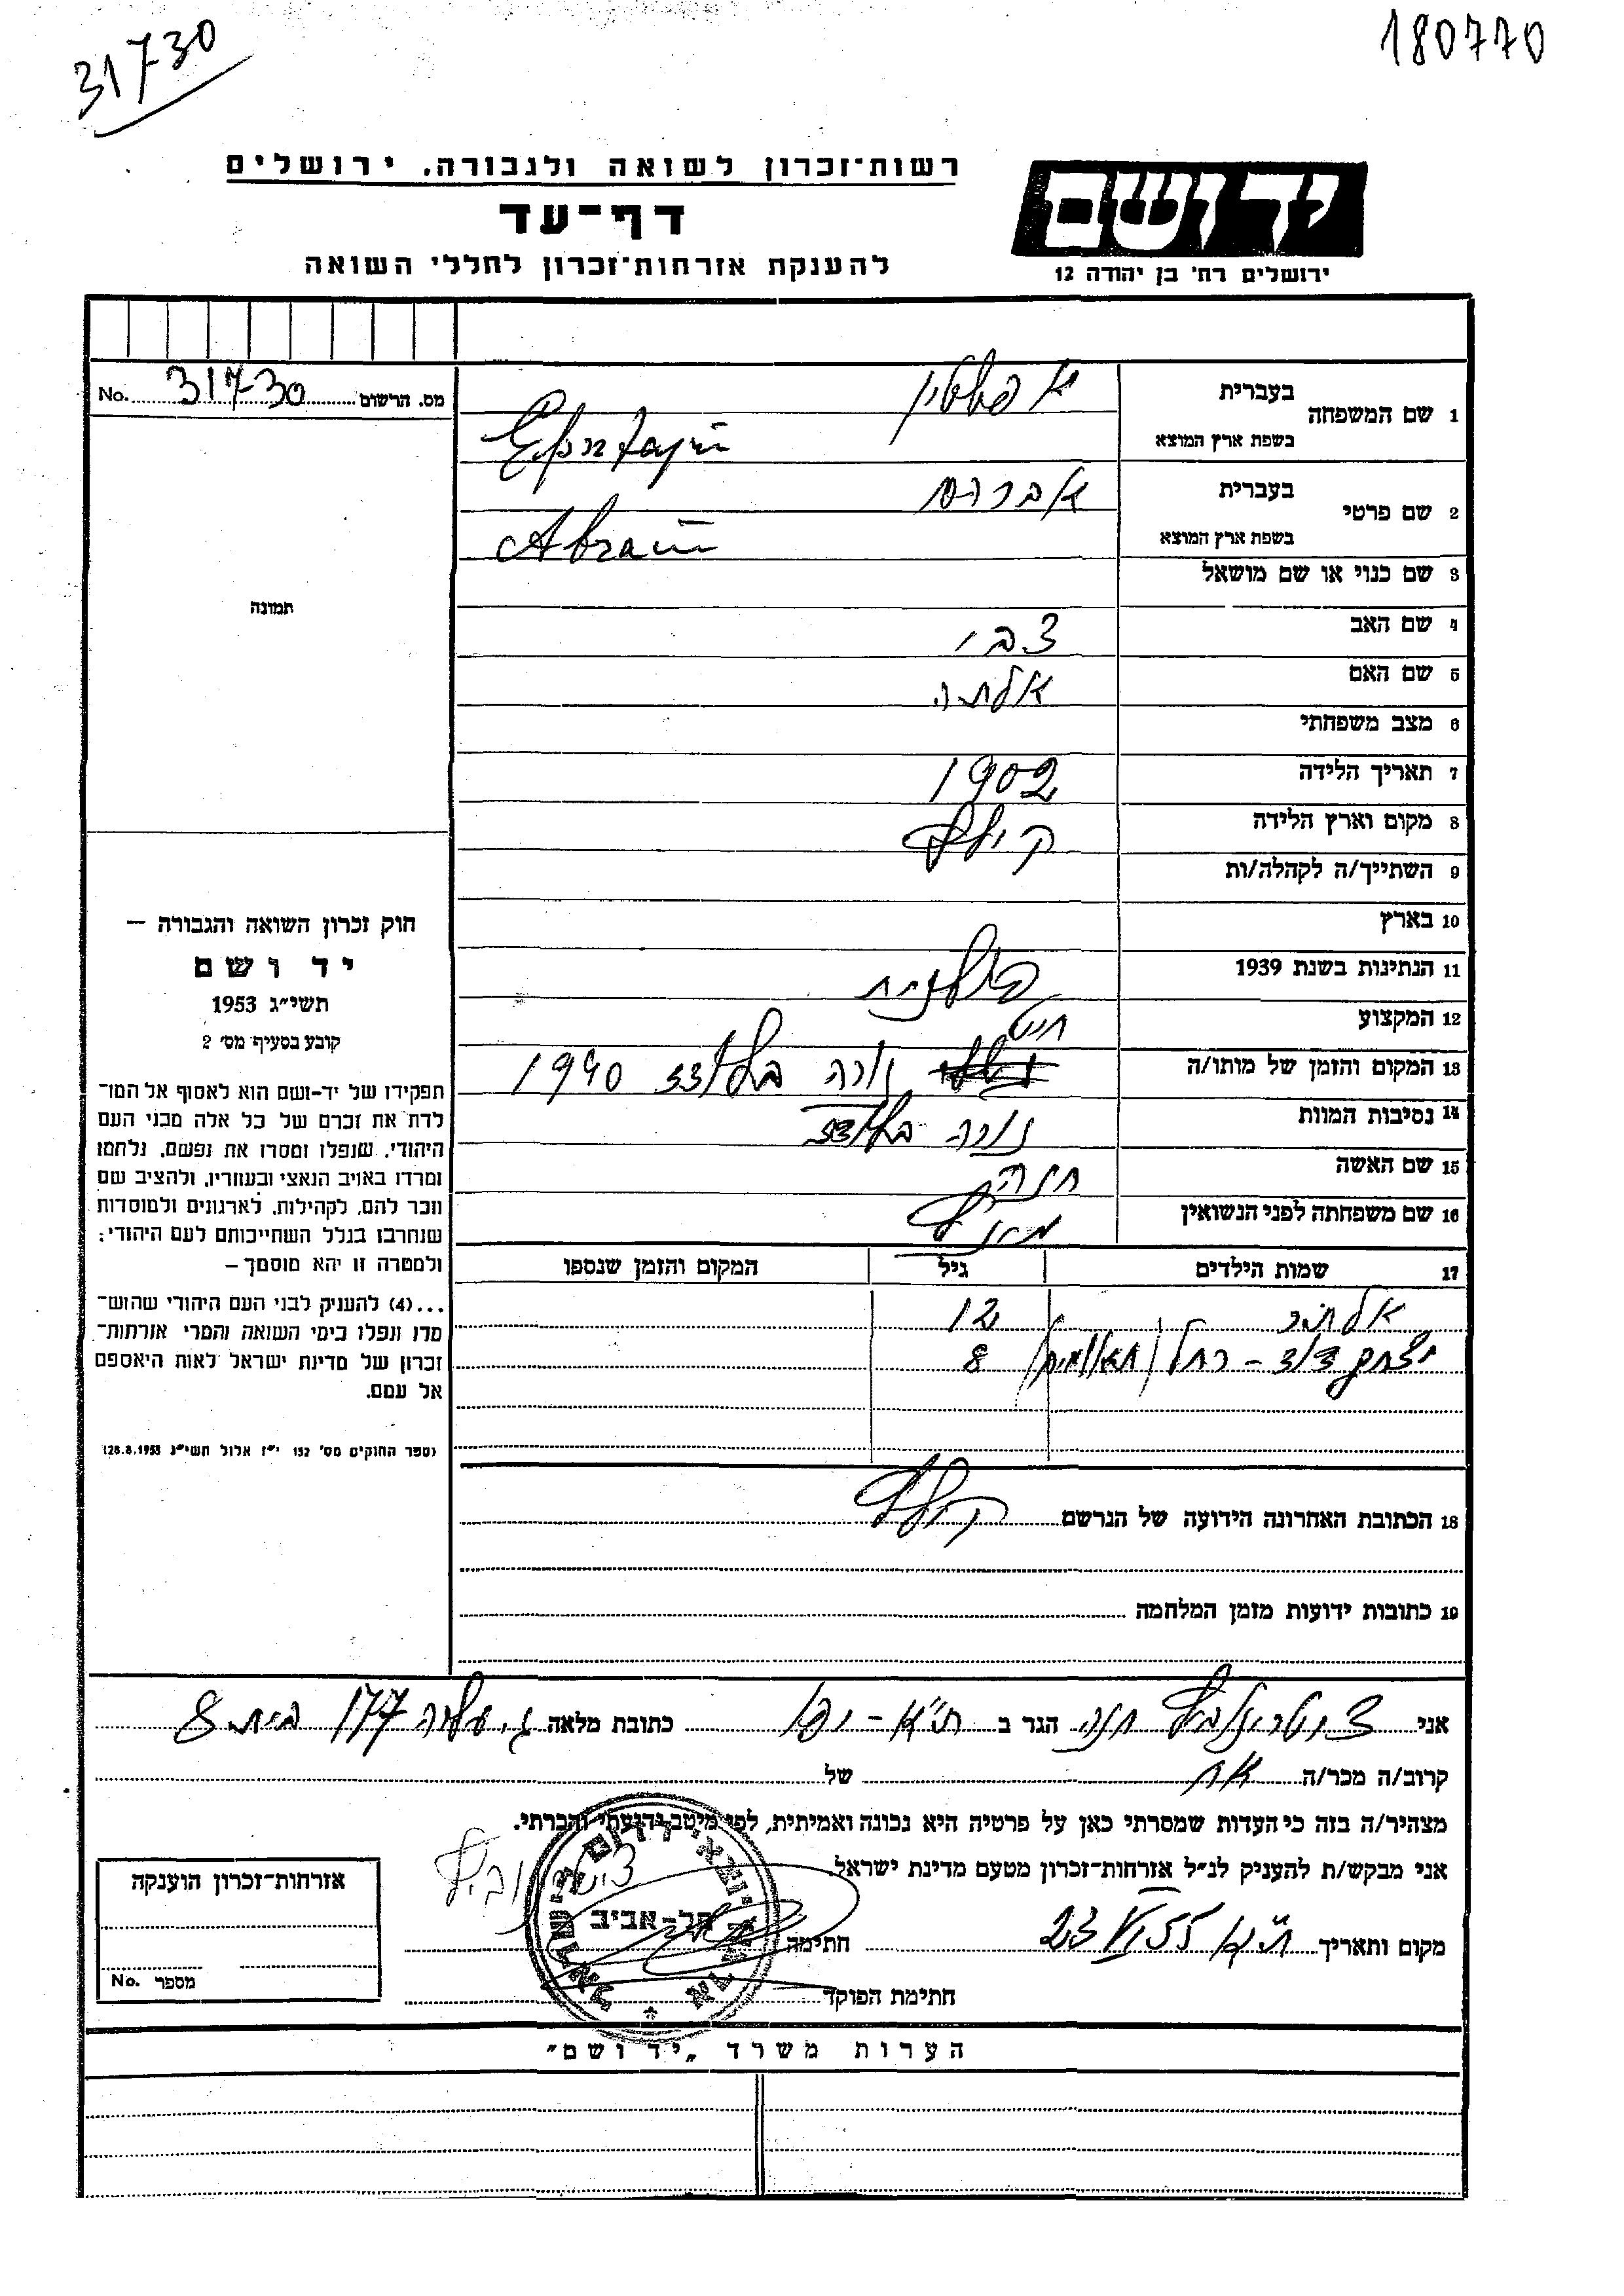 31730
180770
רשות־זכרון לשואה ולגבורה, ירושלים
דף־עד
להענקת אזרחות־זכרון לחללי השואה
יד ושם
ירושלים רח' בן יהודה 12
מס. הרשום 31730 No.
תמונה
1 שם המשפחה
בעברית
אפשטין
בשפת ארץ המוצא
2 שם פרטי
בעברית אברהם
בשפת ארץ המוצא Abram
3 שם כנוי או שם מושאל
4 שם האב צבי
5 שם האם
6 מצב משפחתי
7 תאריך הלידה 1902
8 מקום וארץ הלידה קילץ
9 השתייך/ה לקהלה/ות
10 בארץ
11 הנתינות בשנת 1939 פולנית
12 המקצוע חייט
13 המקום והזמן של מותו/ה נורה בלודז 1940
14 נסיבות המוות נורה בלודז
15 שם האשה חנה
16 שם משפחתה לפני הנשואין
17 שמות הילדים גיל המקום והזמן שנספו
12
יצחק דוד – רחל (תאומים) 8
18 הכתובת האחרונה הידועה של הנרשם קילץ
19 כתובות ידועות מזמן המלחמה
חוק זכרון השואה והגבורה –
יד ושם
תשי״ג 1953
קובע בסעיף מס׳ 2
תפקידו של יד־ושם הוא לאסוף אל המו־
לדת את זכרם של כל אלה מבני העם
היהודי, שנפלו ומסרו את נפשם, נלחמו
ומרדו באויב הנאצי ובעוזריו, ולהציב שם
וזכר להם, לקהילות, לארגונים ולמוסדות
שנחרבו בגלל השתייכותם לעם היהודי;
ולמטרה זו יהא מוסמך –
...(4) להעניק לבני העם היהודי שהוש־
מדו ונפלו בימי השואה והמרי אזרחות־
זכרון של מדינת ישראל לאות היאספם
אל עמם.
(ספר החוקים מס׳ 132 י״ז אלול תשי״ג 28.8.1953)
אני חנה הגר ב ת״א – יפו כתובת מלאה 177 בית 8
קרוב/ה מכר/ה של
מצהיר/ה בזה כי העדות שמסרתי כאן על פרטיה היא נכונה ואמיתית, לפי מיטב ידיעתי והכרתי.
אני מבקש/ת להעניק לנ״ל אזרחות־זכרון מטעם מדינת ישראל.
מקום ותאריך ת״א 23 VI 55 חתימה
חתימת הפוקד
תל־אביב
אזרחות־זכרון הוענקה
מספר No.
הערות משרד „יד ושם״